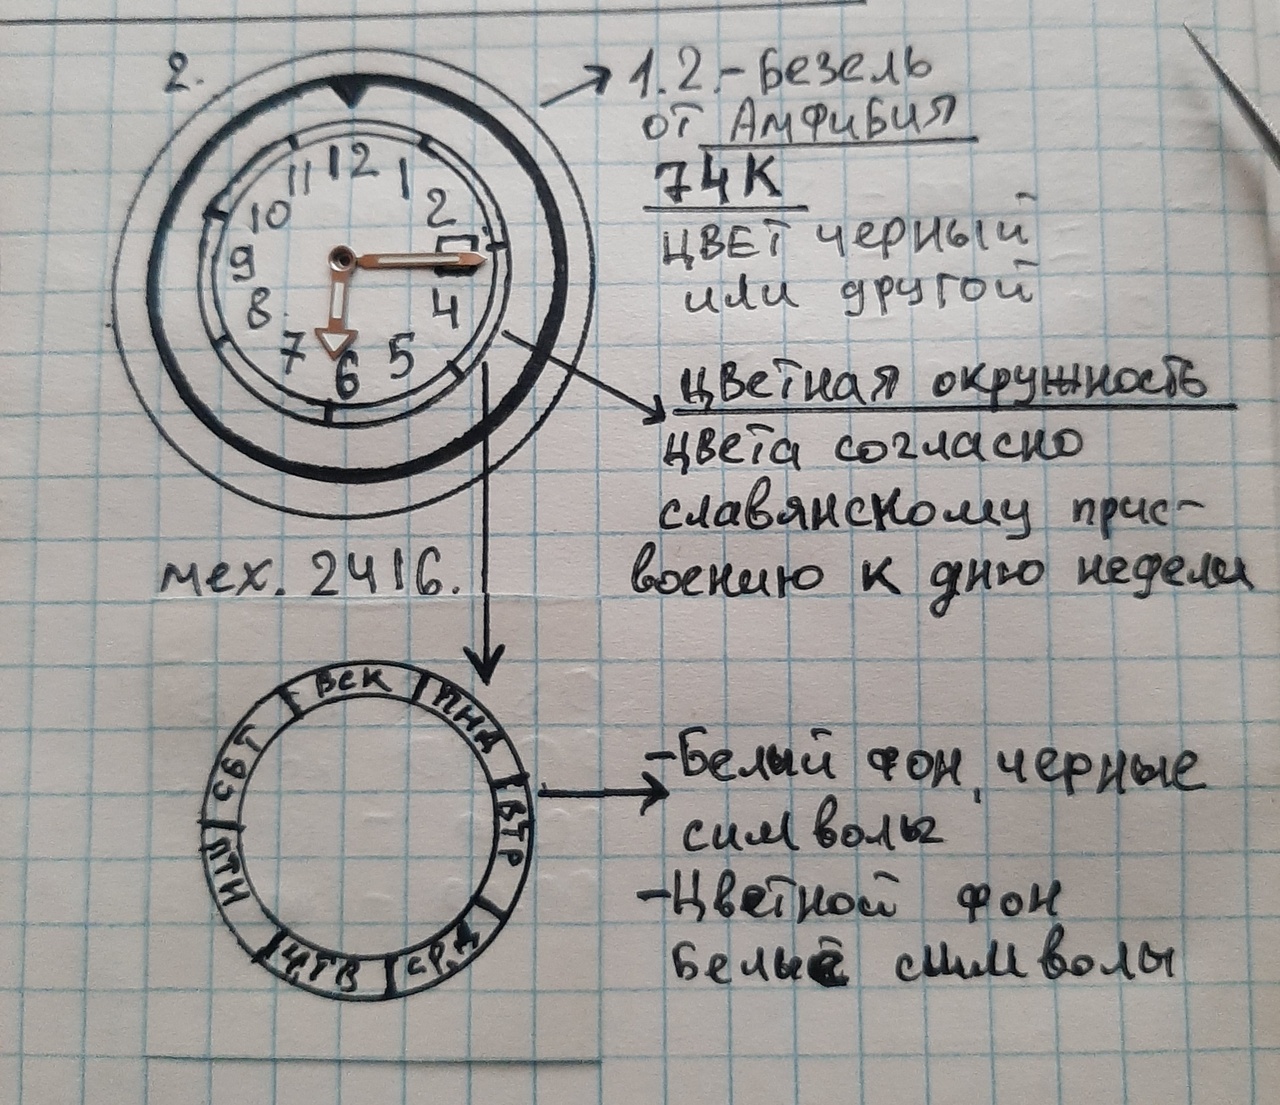 2.
1.2.- Безель
от Амфибия
74К
цвет черный
или другой
12
1
2
4
5
6
7
8
9
10
11
цветная окружность
цвета согласно
славянскому прис-
воению к дню недели
мех. 2416.
ВСК
ПНД
ВТР
СРД
ЧТВ
ПТН
СБТ
-Белый фон, черные
символы
-Цветной фон
Белые символы